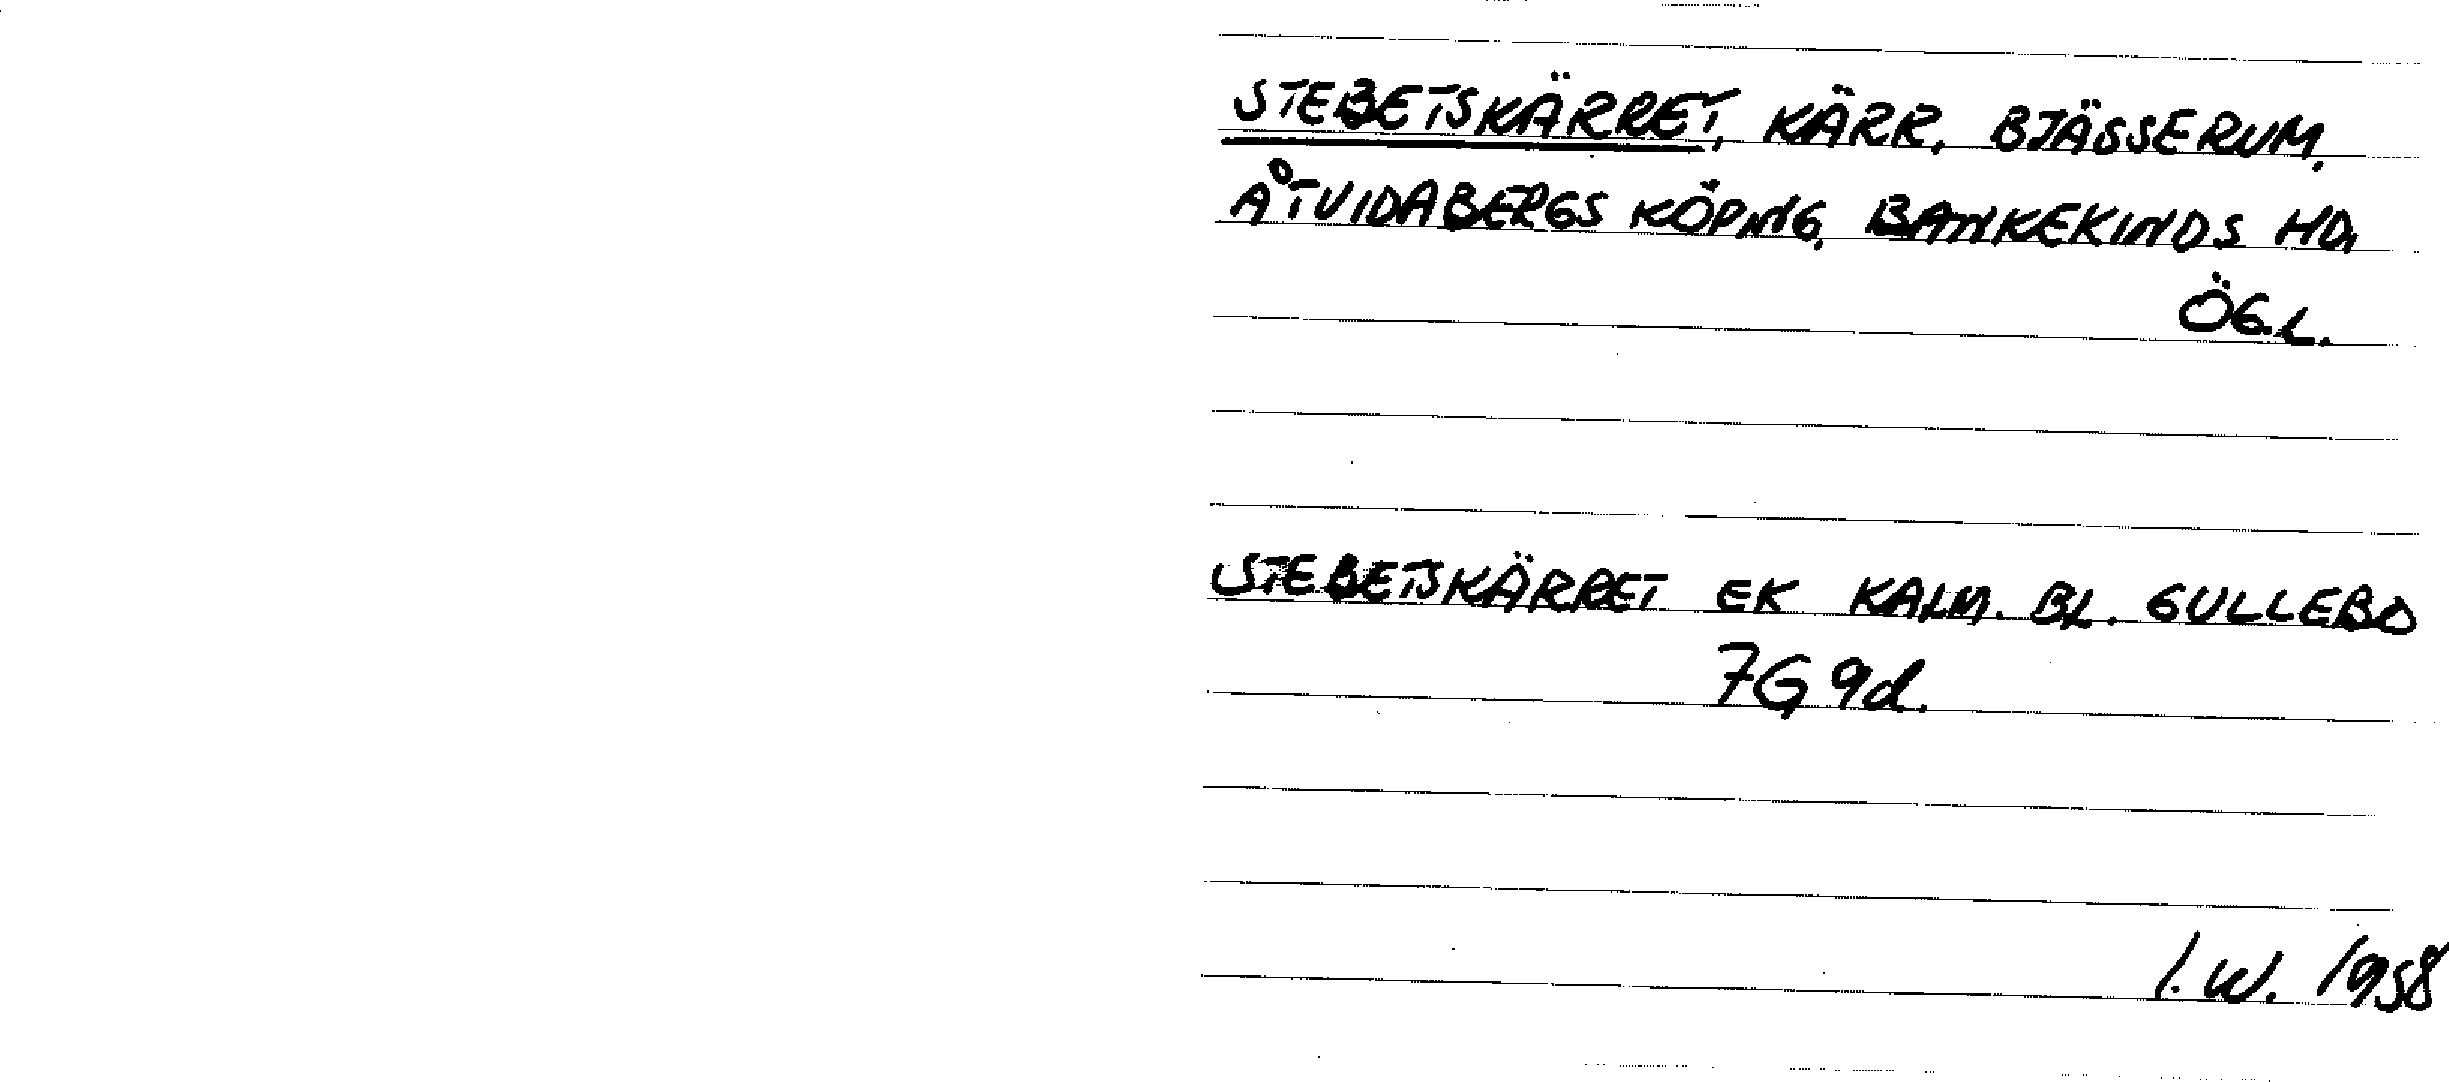 STEBETSKÄRRET, KÄRR, BJÄSSERUM,
ÅTVIDABERGS KÖPING, BANKEKINDS HD,
ÖG.L.
STEBETSKÄRRET EK KALM. BL. GULLEBO
7G 9d.
I.W. 1958